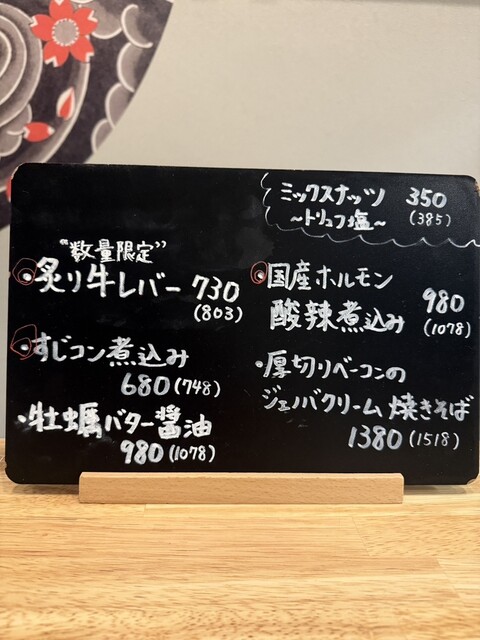 ミックスナッツ 350
~トリュフ塩~ (385)
"数量限定"
・炙り牛レバー 730
(803)
・すじコン煮込み
680(748)
・牡蠣バター醤油
980(1078)
・国産ホルモン
酸辣煮込み 980
(1078)
・厚切りベーコンの
ジェノバクリーム焼きそば
1380(1518)